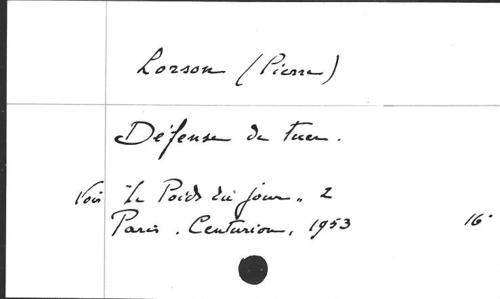 Lorson (Pierre)
Défense de tuer.
Voir "Le Poids du jour" 2
Paris. Centurion, 1953 16°